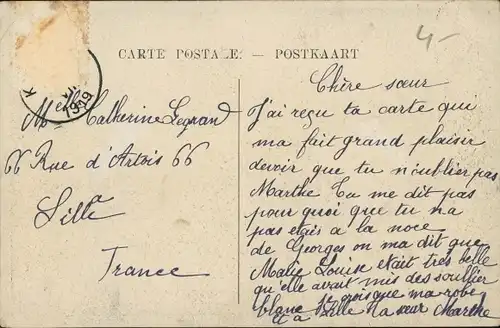 4-
CARTE POSTALE — POSTKAART
1919
Melle Catherine Legrand
66 Rue d'Artois 66
Lille
France
Chère sœur
J'ai reçu ta carte qui
ma fait grand plaisir
devoir que tu n'oublier pas
Marthe Tu me dit pas
pour quoi que tu na
pas etais a la noce
de Georges on ma dit que
Marie Louise était très belle
qu'elle avait mis des soullier
blanc Je crois que ma robe
Lille Ta sœur Marthe